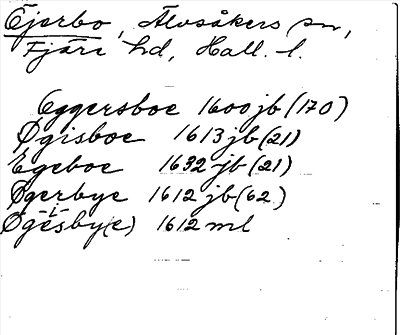 Ejerbo, Älvsåkers sn,
Fjäre hd, Hall. l.
Eggersboe 1600 jb (170)
Øgisboe 1613 jb (21)
Egeboe 1632 jb (21)
Øgerbye 1612 jb (62)
Øgesby(e) 1612 ml